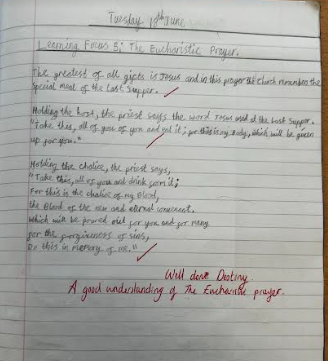 Tuesday 18th June
Learning Focus 5: The Eucharistic Prayer.
The greatest of all gifts is Jesus and in this prayer the Church remembers the
special meal of the Last Supper.
Holding the host, the priest says the word Jesus said at the Last Supper.
"Take this, all of you and eat it; for this is my body, which will be given
up for you."
Holding the chalice, the priest says,
"Take this, all of you and drink from it;
For this is the chalice of my blood,
the Blood of the new and eternal covenant.
which will be poured out for you and for many
for the forgiveness of sins,
Do this in memory of me."
Well done Destiny
A good understanding of The Eucharistic prayer.